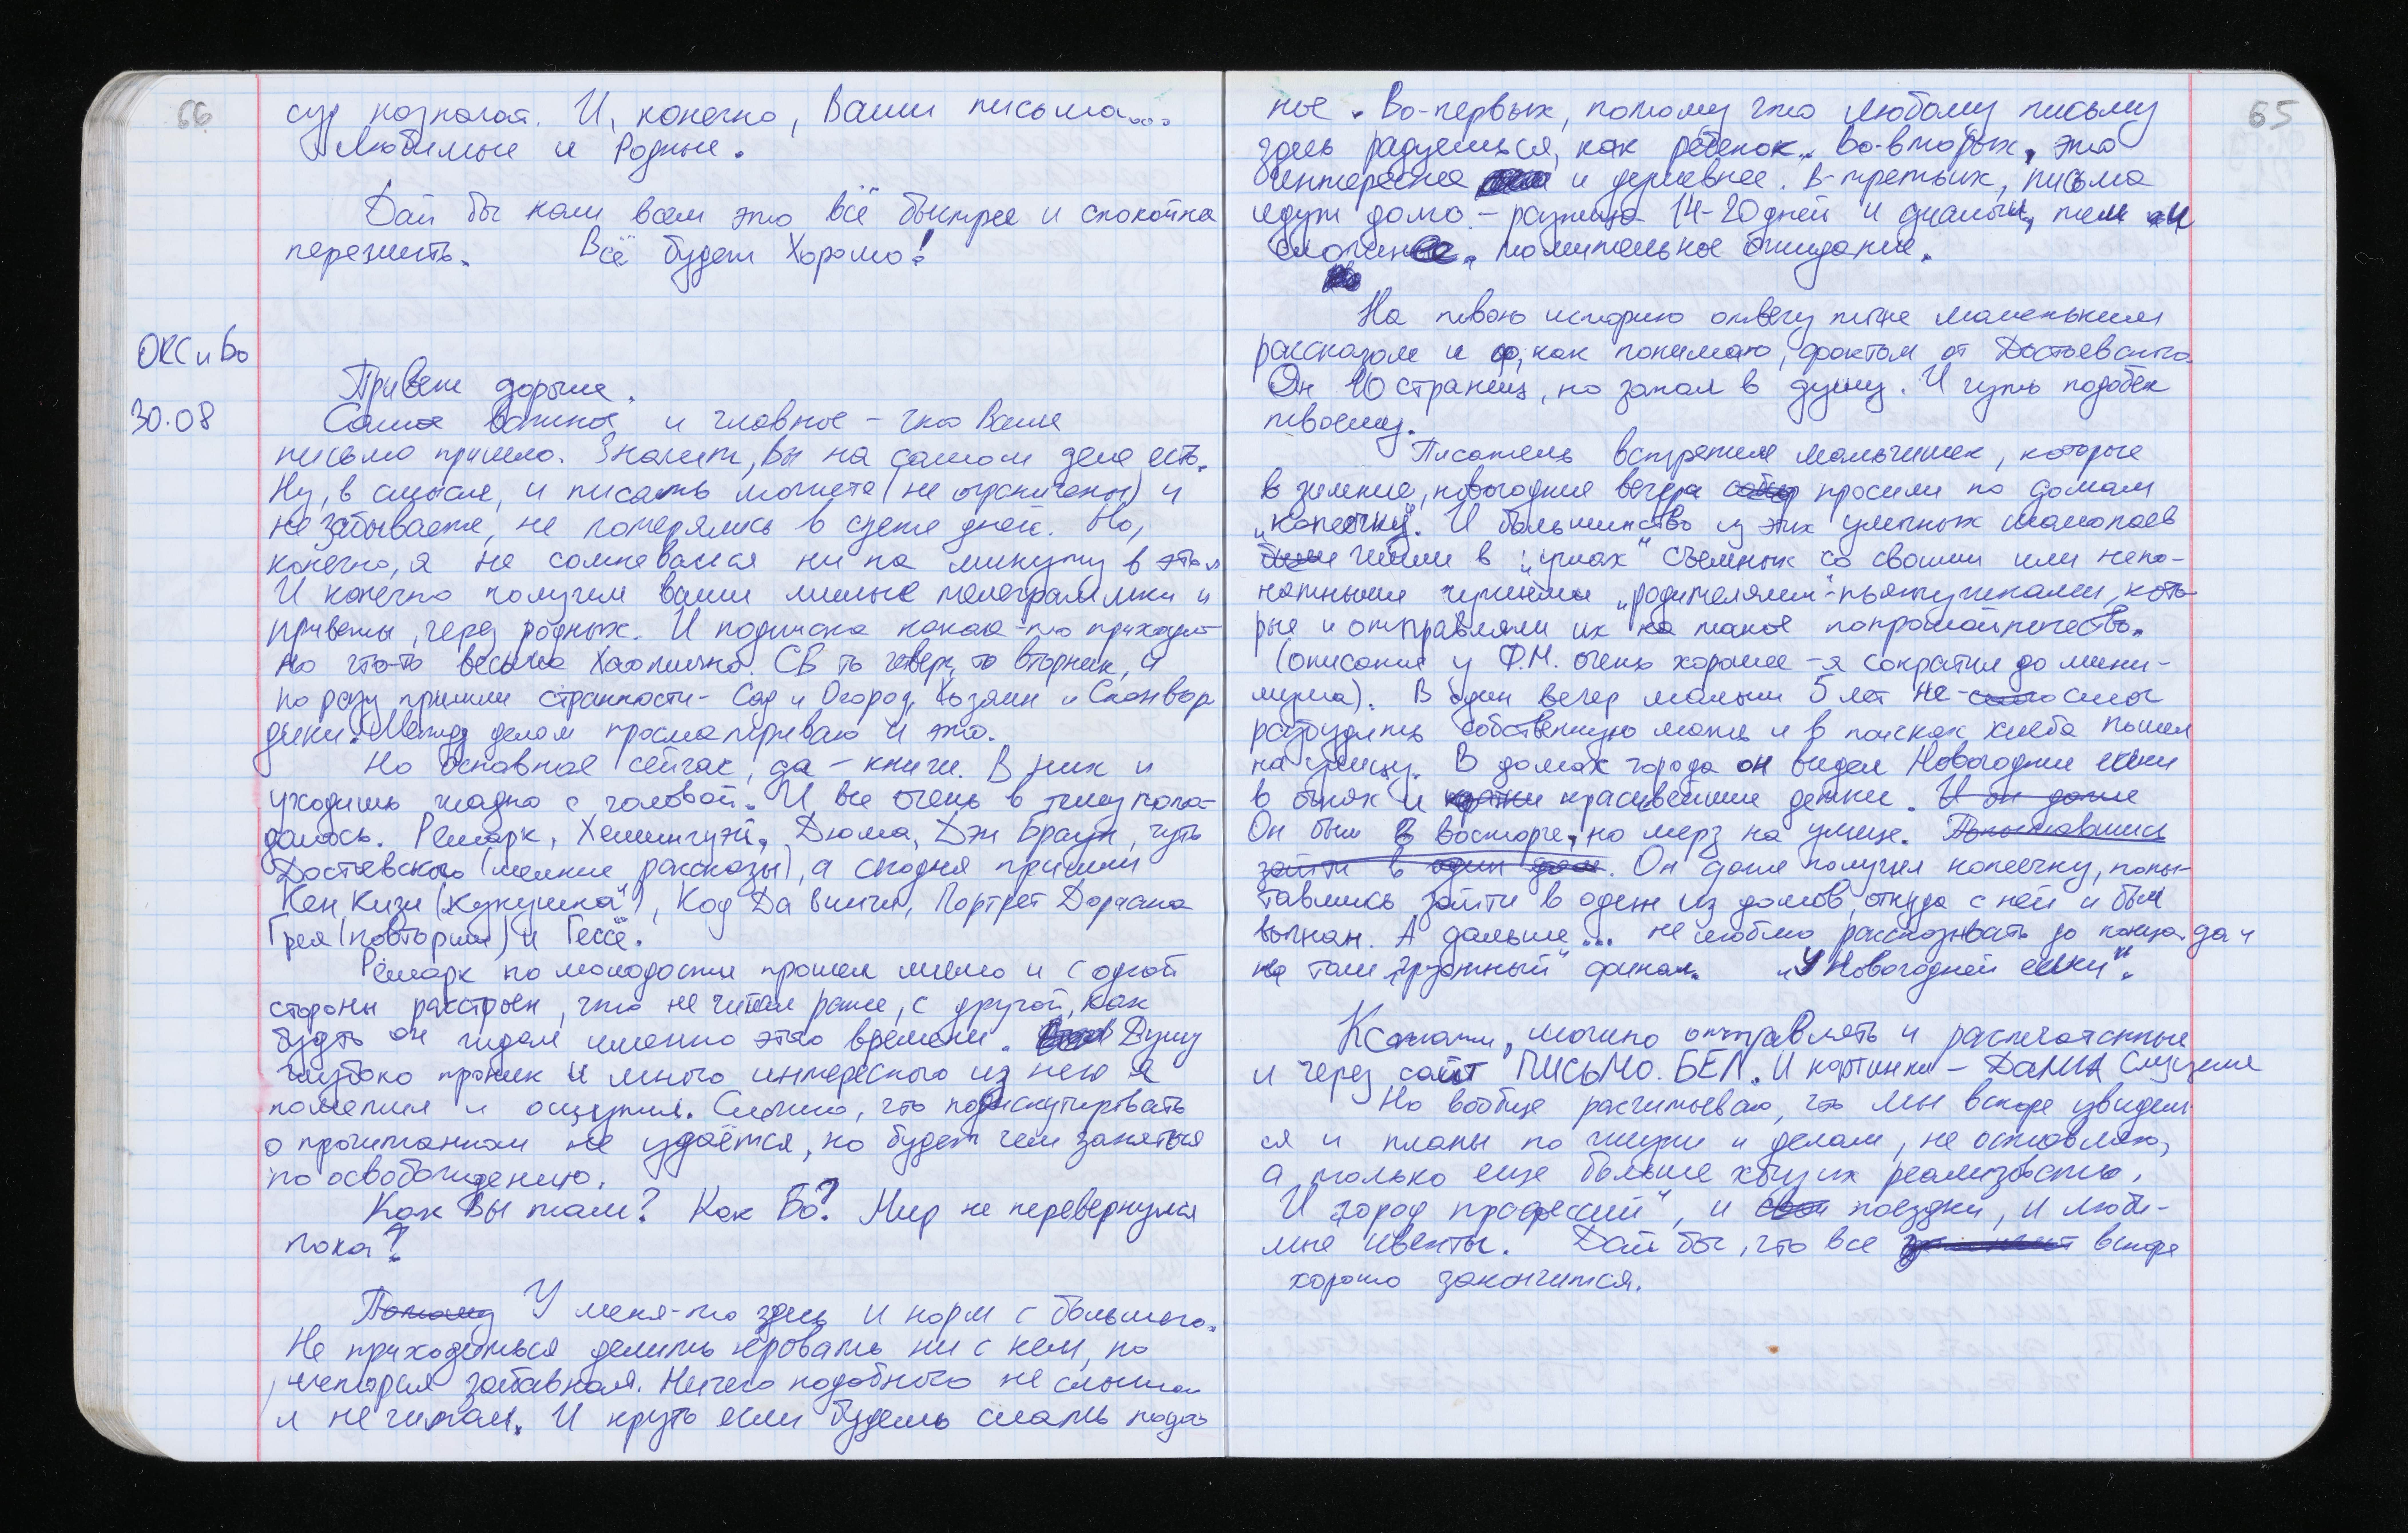 66
суд назначат. И, конечно, Ваши письма...
Любимые и Родные.
Дай бы нам всем это всё быстрее и спокойно
пережить. Всё будет Хорошо!
ОКС и Бо
30.08
Привет дорые.
Самое важное и главное – что Ваше
письмо пришло. Значит, Вы на самом деле есть.
Ну, в смысле, и писать можете (не ограничены) и
не забываете, не потерялись в суете дней. Но,
конечно, я не сомневался ни на минуту в этом
И конечно получил ваши милые телеграммки и
приветы, через родных. И подписка какая-то приходит
но что-то весьма хаотично. СБ то четверг, то вторник, и
по разу пришли странности – Сад и Огород, Хозяин и Сканвор
дики. Между делом просматриваю и это.
Но основное сейчас, да – книги. В них и
уходишь жадно с головой. И все очень в тему попа-
далось. Ремарк, Хемингуэй, Дюма, Дэн Браун, чуть
Достаевского (мелкие рассказы), а сегодня пришли
Кен Кизи („Кукушка"), Код Да Винчи, Портрет Дориана
Грея (повторил) и Гессе.
Ремарк по молодости прошел мимо и с одной
стороны расстроен, что не читал ранее, с другой, как
будто он ждал именно этого времени. Душу
глубоко проник и много интересного из него я
почерпнул и ощутил. Сложно, что подискутировать
о прочитанном не удаётся, но будет чем заняться
по освобождению.
Как Вы там? Как Бо? Мир не перевернулся
пока?
Потому У меня-то здесь и норм с большего.
Не приходиться делить кровать ни с кем, но
история забавная. Ничего подобного не слышал
и не читал. И круто если будешь слать подоб
65
ное. Во-первых, потому что любому письму
здесь радуешься, как ребенок. Во-вторых, это
интересно и душевнее. В-третьих, письма
идут долго – разница 14-20 дней и диалоги, тем и
сложнее, томительное ожидание.
На твою историю отвечу тыже маленьким
рассказом и, как понимаю, фактом от Достоевского.
Он 10 страниц, но запал в душу. И чуть подобен
твоему.
Писатель встретил мальчишек, которые
в зимние, новогодние вечера просили по домам
„копеечку". И большинство из этих уличных шалопаев
были жили в „углах" съемных со своими или непо-
нятными чужими „родителями"-пьянчужками, кото-
рые и отправляли их на такое попрошайничество.
(описание у Ф.М. очень хорошее – я сократил до мини-
мума). В один вечер малыш 5 лет не смог
разбудить собственную мать и в поисках хлеба пошел
на улицу. В домах города он видел Новогодние елки
в огнях и красивейшие детки. И он даже
Он был в восторге, но мерз на улице. Попытавшись
зайти в один дом. Он даже получил копеечку, попы-
тавшись зайти в один из домов, откуда с ней и был
выгнан. А дальше... не люблю рассказывать до конца. да и
не там „грустный" финал. „У Новогодней елки".
Кстати, можно отправлять и распечатанные
и через сайт ПИСЬМО.БЕЛ. И картинки –
Но вообще расчитываю, что мы вскоре увидем-
ся и планы по жизни и делам, не оставляю,
а только еще больше хочу их реализовать.
И „город профессий", и поездки, и люби-
мые ивенты. Дай бы, что все вскоре
хорошо закончится.